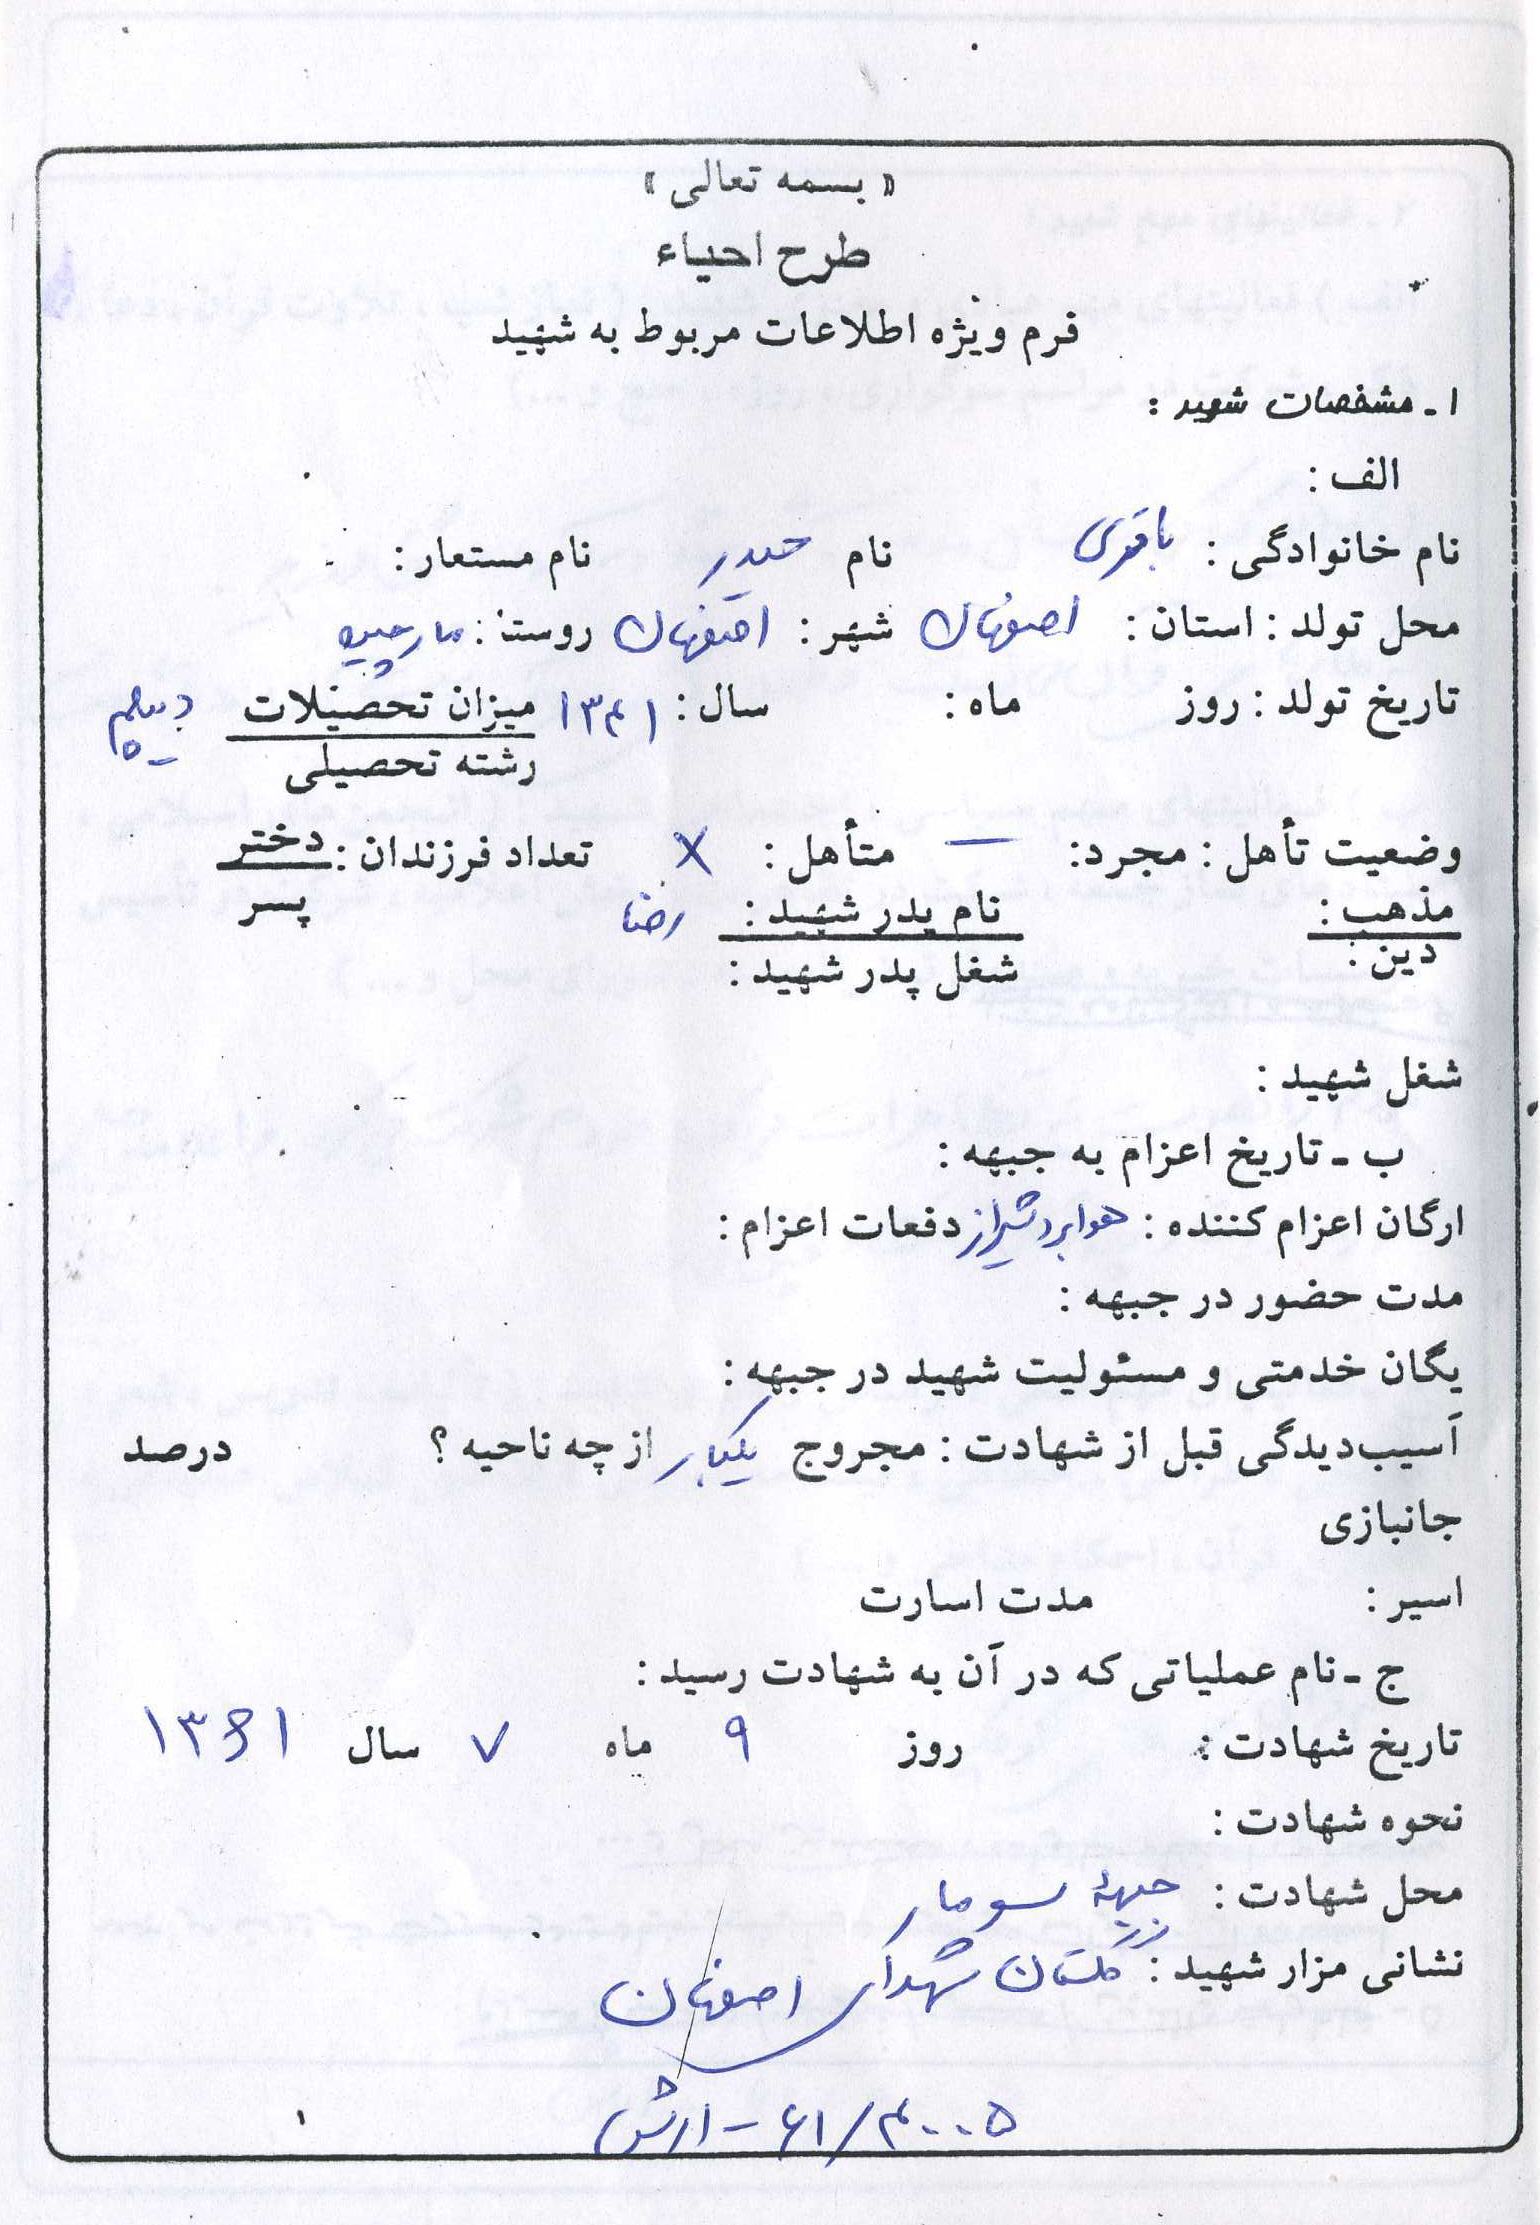 « بسمه تعالی »
طرح احیاء
فرم ویژه اطلاعات مربوط به شهید
۱ ـ مشخصات شهید :
الف :
نام خانوادگی : باقری نام حیدر نام مستعار :
محل تولد : استان : اصفهان شهر : اصفهان روستا : مارچین
تاریخ تولد : روز ماه : سال : ۱۳۴۱ میزان تحصیلات دیپلم
رشته تحصیلی
وضعیت تأهل : مجرد : — متأهل : X تعداد فرزندان : دختر
مذهب : نام پدر شهید : رضا پسر
دین : شغل پدر شهید :
شغل شهید :
ب ـ تاریخ اعزام به جبهه :
ارگان اعزام کننده : هوابرد شیراز دفعات اعزام :
مدت حضور در جبهه :
یگان خدمتی و مسئولیت شهید در جبهه :
آسیب‌دیدگی قبل از شهادت : مجروح یکبار از چه ناحیه ؟ درصد
جانبازی
اسیر : مدت اسارت
ج ـ نام عملیاتی که در آن به شهادت رسید :
تاریخ شهادت : روز ۹ ماه ۷ سال ۱۳۶۱
نحوه شهادت :
محل شهادت : جبههٔ سومار
نشانی مزار شهید : گلستان شهدای اصفهان
۴۰۰۵/۶۱ - ارتش